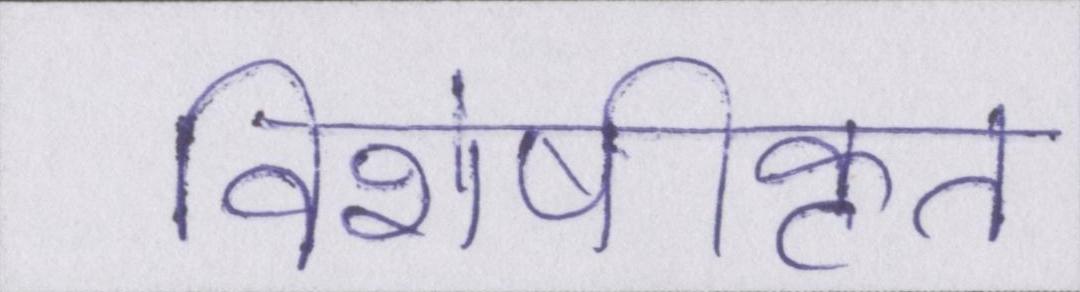 विशंषीकृत